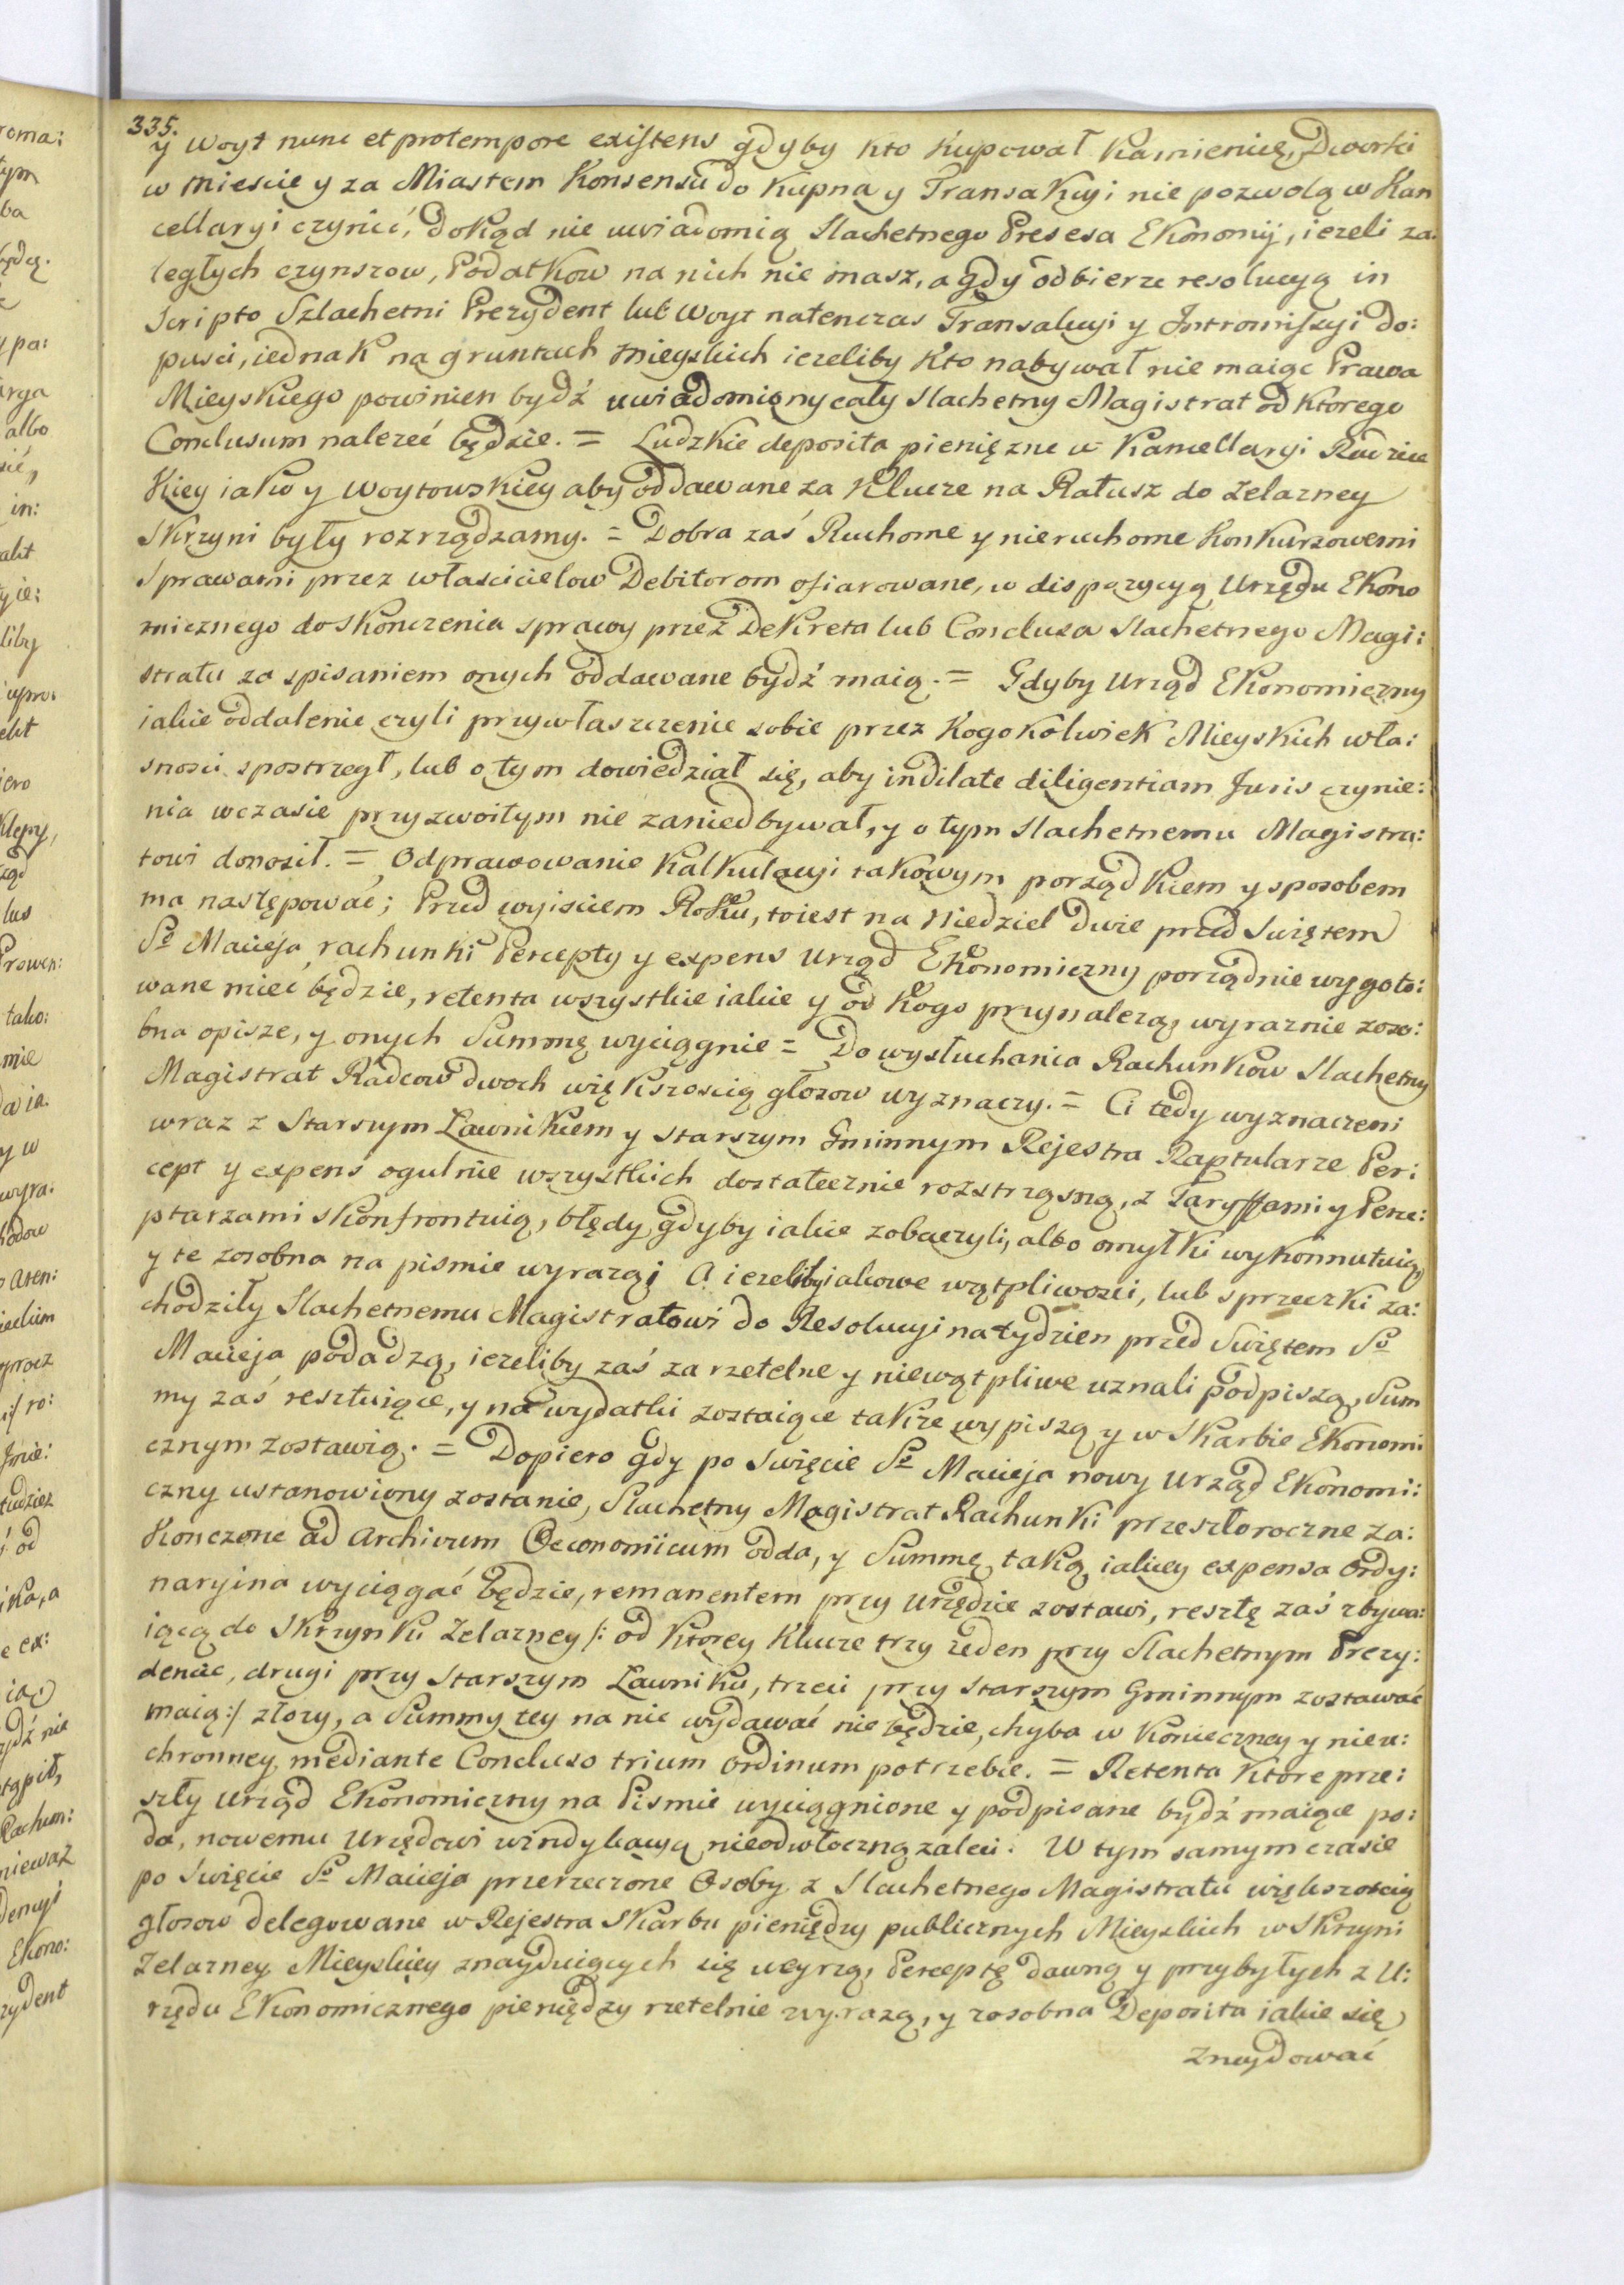 335.
y Woyt nunc et protempore existens gdyby kto kupował Kamienicę, Dworki
w Miescie y za Miastem Konsensu do kupna y Transakcyi nie pozwolą w Kan
cellaryi czynić, dokąd nie uwiadomią Slachetnego Presesa Ekonomij, iezeli za:
ległych czynszow, Podatkow na nich nie masz, a gdy odbierze resolucyą in
Scripto Szlachetni Prezydent lub Woyt natenczas Transakcyi y Intromissyi do:
pusci, iednak na gruntach mieyskich iezeliby kto nabywał nie maiąc Prawa
Mieyskiego powinien bydź uwiadomiony cały Slachetny Magistrat od ktorego
Conclusum nalezeć będzie. = Ludzkie deposita pienięzne w Kancellaryi Radziec
kiey iako y Woytowskiey aby oddawane za klucze na Ratusz do Zelazney
Skrzyni były rozrządzamy. = Dobra zaś Ruchome y nieruchome Konkurzowemi
Sprawami przez własciciełow Debitorom ofiarowane, w dispozycyą Urzędu Ekono
micznego do skończenia sprawy przez Dekreta lub Conclusa Slachetnego Magi:
stratu za spisaniem onych oddawane bydź maią. = Gdyby Urząd Ekonomiczny
iakie oddalenie czyli przywłaszczenie sobie przez kogokolwiek Mieyskich wła:
snosci spostrzegł, lub o tym dowiedział się, aby indilate diligentiam Juris czynie:
nia wczasie przyzwoitym nie zaniedbywał, y o tym Slachetnemu Magistra:
towi donosił. = Odprawowanie Kalkulacyi takowym porządkiem y sposobem
ma następować; Przed wyisciem Roku, to iest na Niedziel dwie przed Swiętem
So Macieja rachunki Percepty y expens Urząd Ekonomiczny porządnie wygoto:
wane mieć będzie, retenta wszystkie iakie y od kogo przynalezą, wyraznie zoso:
bna opisze, y onych Summę wyciągnie = Do wysłuchania Rachunkow Slachetny
Magistrat Radcow dwoch większoscią głosow wyznaczy. = Ci tedy wyznaczeni
wraz z Starszym Ławnikiem y starszym Gminnym Rejestra Raptularze Per:
cept y expens ogulnie wszystkich dostatecznie roztrząsną, z Taryffami y Perce:
ptarzami skonfrontuią, błędy gdyby iakie zobaczyli, albo omyłki wykonnutuią
y te zosobna na pismie wyrazą; A iezeliby iakowe wątpliwosci, lub sprzeczki za:
chodziły Slachetnemu Magistratowi do Resolucyi na tydzien przed Swiętem So
Macieja podadzą, iezeliby zaś za rzetelne y niewątpliwe uznali podpiszą, Sum
my zaś resztuiące, y na wydatki zostaiące takze wypiszą y w Skarbie Ekonomi
cznym zostawią. = Dopiero gdy po swięcie So Macieja nowy Urząd Ekonomi:
czny ustanowiony zostanie, Slachetny Magistrat Rachunki przeszłoroczne za:
kończone ad Archivum Oeconomicum odda, y Summę taką iakiey expensa Ordy:
naryina wyciągać będzie, remanentem przy Urzędzie zostawi, resztę zaś zbywa:
iącą do Skrzynki Zelazney /: od ktorey Klucze trzy ieden przy Slachetnym Prezy:
dencie, drugi przy Starszym Ławniku, trzeci przy Starszym Gminnym zostawać
maią :/ złozy, a Summy tey na nic wydawać nie będzie, chyba w Konieczney y nieu:
chronney, mediante Concluso trium Ordinum potrzebie. = Retenta ktore prze:
szły Urząd Ekonomiczny na Pismie wyciągnione y podpisane bydź maiące po:
da, nowemu Urzędowi windykacyą nieodwłoczną zaleci. W tym samym czasie
po Swięcie So Macieja przerzeczone Osoby z Slachetnego Magistratu większoscią
głosow delegowane w Rejestra Skarbu pieniędzy publicznych Mieyskich w Skrzyni
Zelazney Mieyskiey znayduiących się weyrzą, Perceptę dawną y przybyłych z U:
rzędu Ekonomicznego pieniędzy rzetelnie wyrazą, y zosobna Deposita iakie się
znaydować